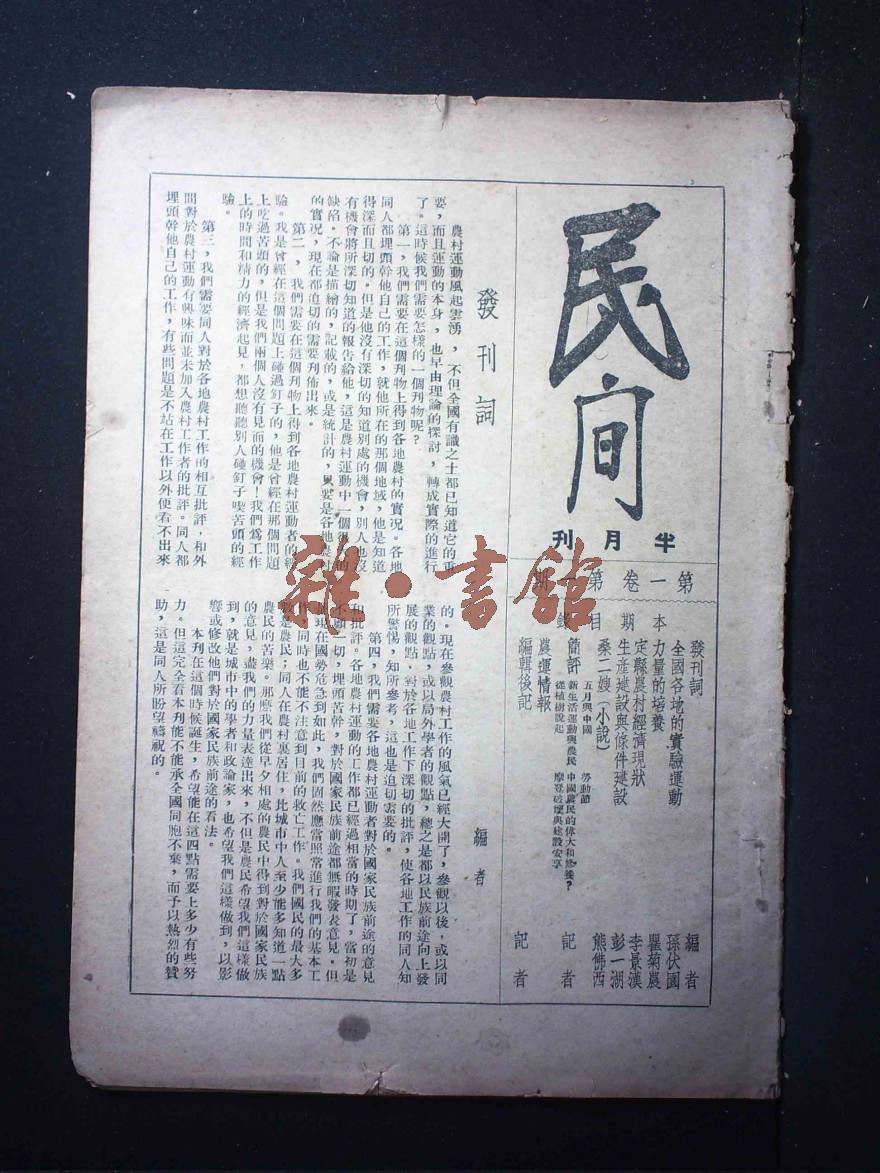 民间
半月刊
第一卷第一期
本期目錄
發刊詞 編者
全國各地的實驗運動 孫伏園
力量的培養 瞿菊農
定縣農村經濟現狀 李景漢
生產建設與條件建設 彭一湖
桑二嫂（小說） 熊佛西
簡評 記者
五月與中國 勞動節
新生活運動與農民 中國農民的偉大和修養？
從植樹說起 摩登破壞與建設安享
農運情報
編輯後記 記者
發刊詞
編者
農村運動風起雲湧，不但全國有識之士都已知道它的重
要，而且運動的本身，也早由理論的探討，轉成實際的進行
了。這時候我們需要怎樣的一個刊物呢？
第一，我們需要在這個刊物上得到各地農村的實況。各地
同人都埋頭幹他自己的工作，就他所在的那個地域，他是知道
得深而且切的。但是他沒有深切的知道別處的機會，別人也沒
有機會將所深切知道的報告給他，這是農村運動中一個很的
缺陷。不論是描繪的，記載的，或是統計的，只要是各地農村
的實況，現在都迫切的需要刊佈出來。
第二，我們需要在這個刊物上得到各地農村運動者的經
驗。我是曾經在這個問題上碰過釘子的，他是曾經在那個問題
上吃過苦頭的，但是我們兩個人沒有見面的機會！我們爲工作
上的時間和精力的經濟起見，都想聽聽別人碰釘子喫苦頭的經
驗。
第三，我們需要同人對於各地農村工作的相互批評，和外
間對於農村運動有興味而並未加入農村工作者的批評。同人都
埋頭幹他自己的工作，有些問題是不站在工作以外便看不出來
的。現在參觀農村工作的風氣已經大開了，參觀以後，或以同
業的觀點，或以局外學者的觀點，總之是都以民族前途向上發
展的觀點，對於各地工作下深切的批評，使各地工作的同人知
所驚惕，知所參考，這也是迫切需要的。
第四，我們需要各地農村運動者對於國家民族前途的意見
和批評。各地農村運動的工作都已經過相當的時期了，當初是
不顧一切，埋頭苦幹，對於國家民族前途都無暇發表意見。但
是現在國勢危急到如此，我們固然應當照常進行我們的基本工
作，同時也不能不注意到目前的救亡工作。我們國民的最大多
數是農民；同人在農村裏居住，比城市中人至少能多知道一點
農民的苦樂。那麼我們從早夕相處的農民中得到對於國家民族
的意見，盡我們的力量表達出來，不但是農民希望我們這樣做
到，就是城市中的學者和政論家，也希望我們這樣做到，以影
響或修改他們對於國家民族前途的看法。
本刊在這個時候誕生，希望能在這四點需要上多少有些努
力。但這完全看本刊能不能承全國同胞不棄，而予以熱烈的贊
助，這是同人所盼望禱祝的。
雜·書館